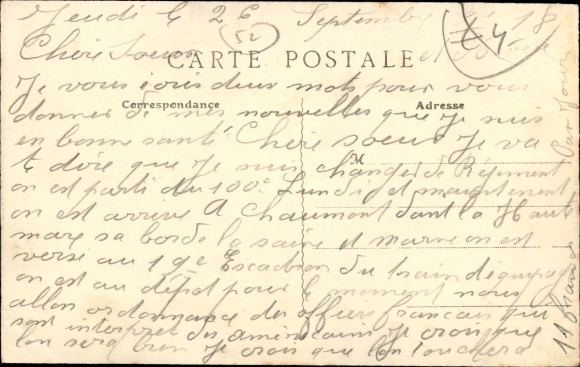 Jeudi le 26 Septembre 1918
52
£4-
Chère Soeur
CARTE POSTALE
Je vous écris deux mots pour vous
Correspondance
Adresse
donner de mes nouvelles que je suis
en bonne santé Chère soeur Je va
M
te dire que Je suis changer de Régiment
on est parti du 100e Lundi et maintenant
on est arrive A Chaumont dant la Haute
marne sa borde la saine et marne on est
verse au 19e Escadron du train déquipage
on est au dépot pour le moment nous
allon ordonnance des offiers francais qui
sont interpres des américains Je crois que
lon sera bien Je crois que lon touchera
11 francs
Par Jour